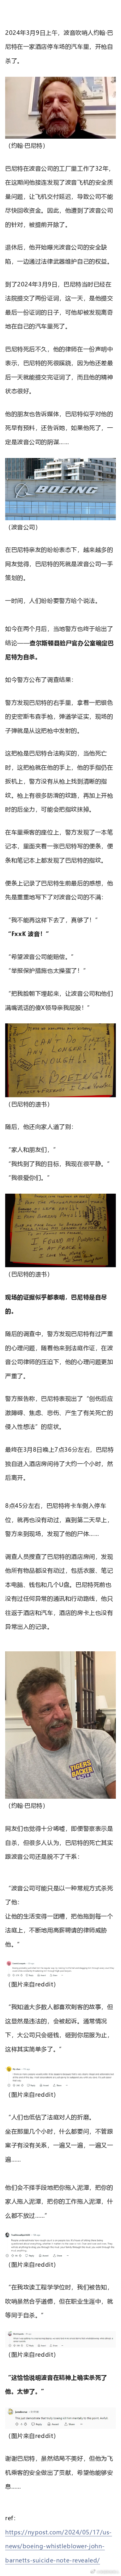 2024年3月9日上午，波音吹哨人约翰·巴
尼特在一家酒店停车场的汽车里，开枪自
杀了。
（约翰·巴尼特）
巴尼特在波音公司的工厂里工作了32年，
在这期间他接连发现了波音飞机的安全质
量问题，让飞机交付延迟，导致公司不能
尽快回收资金。因此，他遭到了波音公司
的针对，被提前开除了。
退休后，他开始曝光波音公司的安全缺
陷，一边通过法律武器维护自己的权益。
到了2024年3月9日，巴尼特当时已经在
法院提交了两份证词，这一天，是他提交
最后一份证词的日子，可他却被发现离奇
地在自己的汽车里死了。
巴尼特死后不久，他的律师在一份声明中
表示，巴尼特的死很蹊跷，因为他还差最
后一天就能提交完证词了，而且他的精神
状态很好。
他的朋友也告诉媒体，巴尼特似乎对他的
死早有预料，还告诉她，如果他死了，一
定是波音公司的阴谋……
BOEING
（波音公司）
在巴尼特亲友的纷纷表态下，越来越多的
网友觉得，巴尼特的死就是波音公司一手
策划的。
一时间，人们纷纷要警方给个说法。
如今在两个月后，当地警方也终于给出了
结论——查尔斯顿县验尸官办公室确定巴
尼特为自杀。
如今警方公布了调查结果：
警方发现巴尼特的右手里，拿着一把银色
的史密斯韦森手枪，弹道学证实，现场的
子弹就是从这把枪中发射的。
这把枪是巴尼特合法购买的，当他死亡
时，这把枪就在他的手上，他的手指仍在
扳机上，警方没有从枪上找到清晰的指
纹。枪上有很多防滑的纹路，再加上开枪
时的后坐力，可能会把指纹抹掉。
在车里乘客的座位上，警方发现了一本笔
记本，里面夹着一张巴尼特写的便条，便
条和笔记本上都发现了巴尼特的指纹。
便条上记录了巴尼特生前最后的感想，他
先是重重地写下了对波音公司的不满：
“我不能再这样下去了，真够了！”
“FxxK 波音！”
“希望波音公司能赔偿。”
“举报保护措施也太操蛋了！”
“把我脸朝下埋起来，让波音公司和他们
满嘴谎话的傻X领导亲我屁股！”
（巴尼特的遗书）
随后，他还向家人道了别：
“家人和朋友们，”
“我找到了我的目标，我现在很平静。”
“我很爱你们。”
（巴尼特的遗书）
现场的证据似乎都表明，巴尼特是自尽
的。
随后的调查中，警方发现巴尼特有过严重
的心理问题，随着他来到法庭作证，在波
音公司律师的压迫下，他的心理问题更加
严重了。
警方报告称，巴尼特表现出了“创伤后应
激障碍、焦虑、悲伤，产生了有关死亡的
侵入性想法”的症状。
最终在3月8日晚上7点36分左右，巴尼特
独自进入酒店房间待了大约一个小时，然
后离开。
8点45分左右，巴尼特将卡车倒入停车
位，就再也没有动过，直到第二天早上，
警方来到现场，发现了他的尸体……
调查人员搜查了巴尼特的酒店房间，发现
他所有物品都没有动过，包括衣服、笔记
本电脑、钱包和几个U盘。巴尼特死前也
没有过任何异常的通讯和行动路线，他只
往返于酒店和汽车，酒店的房卡上也没有
异常出入的记录。
（约翰·巴尼特）
网友们也觉得十分唏嘘，即便警察表示是
自杀，但很多人认为，巴尼特的死亡其实
跟波音公司还是脱不了干系：
“波音公司可能只是以一种常规方式杀死
了他：
让他的生活变得一团糟，把他拖到每一个
法庭上，不断地用高薪聘请的律师威胁
他。”
（图片来自reddit）
“我知道大多数人都喜欢刺客的故事，但
这显然是违法的，会被起诉。通常情况
下，大公司只会砸钱，碰到你屈服为止，
这样其实简单多了。”
（图片来自reddit）
“人们也低估了法庭对人的折磨。
坐在那里几个小时，什么都要问，不管跟
案子有没有关系，一遍又一遍、一遍又一
遍……
他们会不择手段地把你拖入泥潭，把你的
家人拖入泥潭，把你的工作拖入泥潭，什
么都不放过……”
（图片来自reddit）
“在我攻读工程学学位时，我们被告知，
吹哨虽然合乎道德，但在职业生涯中，就
等同于自杀。”
（图片来自reddit）
“这恰恰说明波音在精神上确实杀死了
他。太惨了。”
（图片来自reddit）
谢谢巴尼特，虽然结局不美好，但他为飞
机乘客的安全做出了贡献，希望他能够安
息……
ref：
https://nypost.com/2024/05/17/us-
news/boeing-whistleblower-john-
barnetts-suicide-note-revealed/